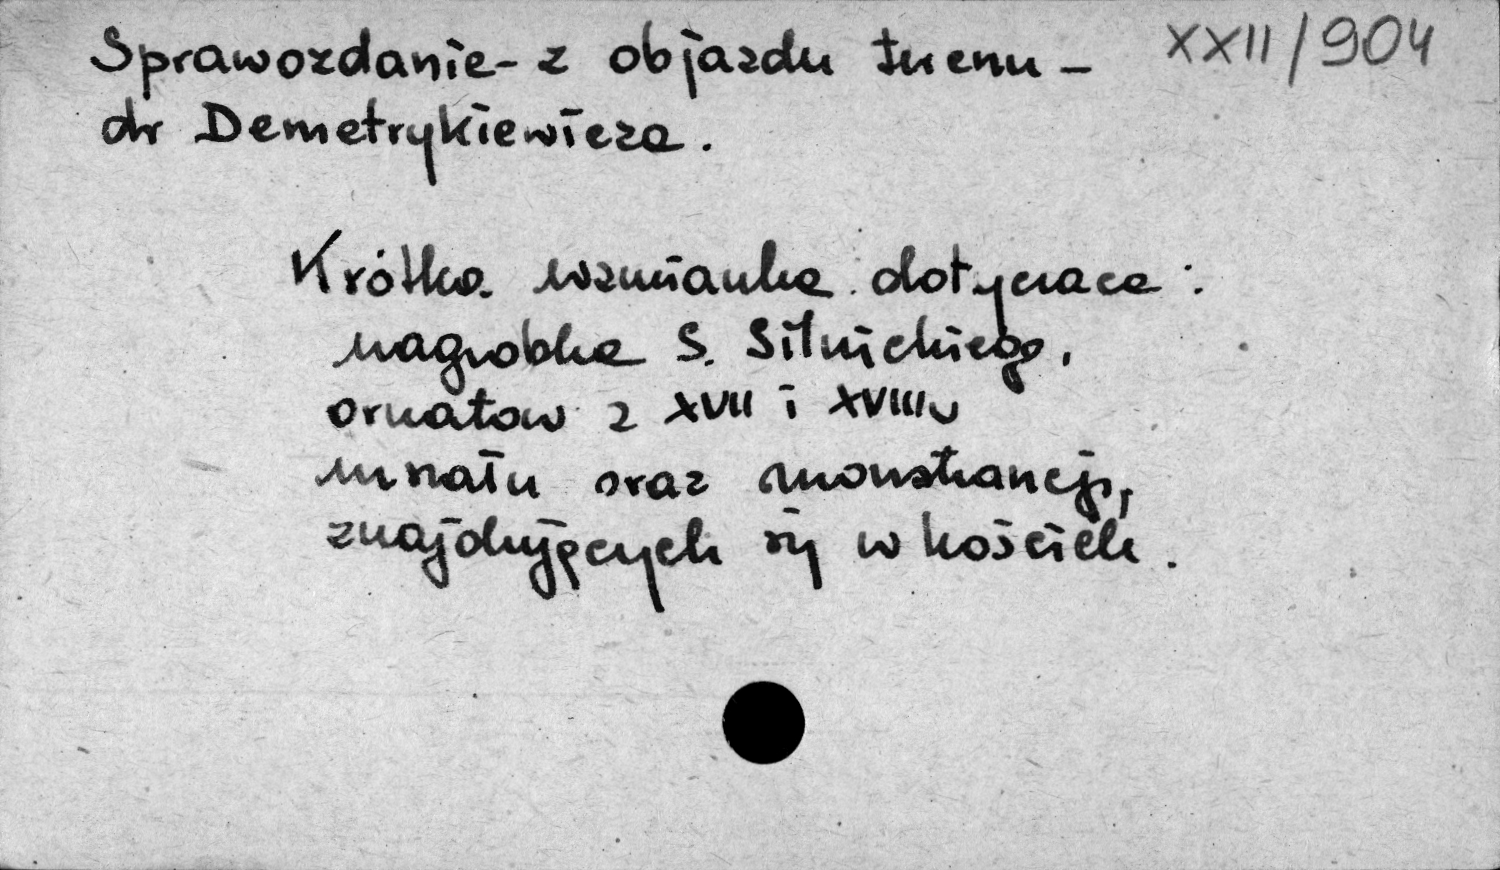 XXII/904
Sprawozdanie - z objazdu terenu -
dr Demetrykiewicza.
Krótka wzmianka dotycząca :
nagrobka S. Silnickiego,
ornatów z XVII i XVIII w
mszału oraz monstrancji,
znajdujących się w kościele.